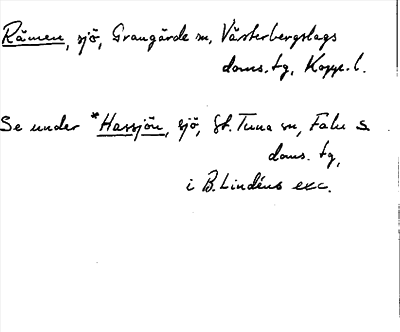 Råmen, sjö, Grangärde sn, Västerbergslags
doms. tg, Kopp. l.
Se under *Hassjön, sjö, St. Tuna sn, Falu s
doms. tg,
i B. Lindéns exc.